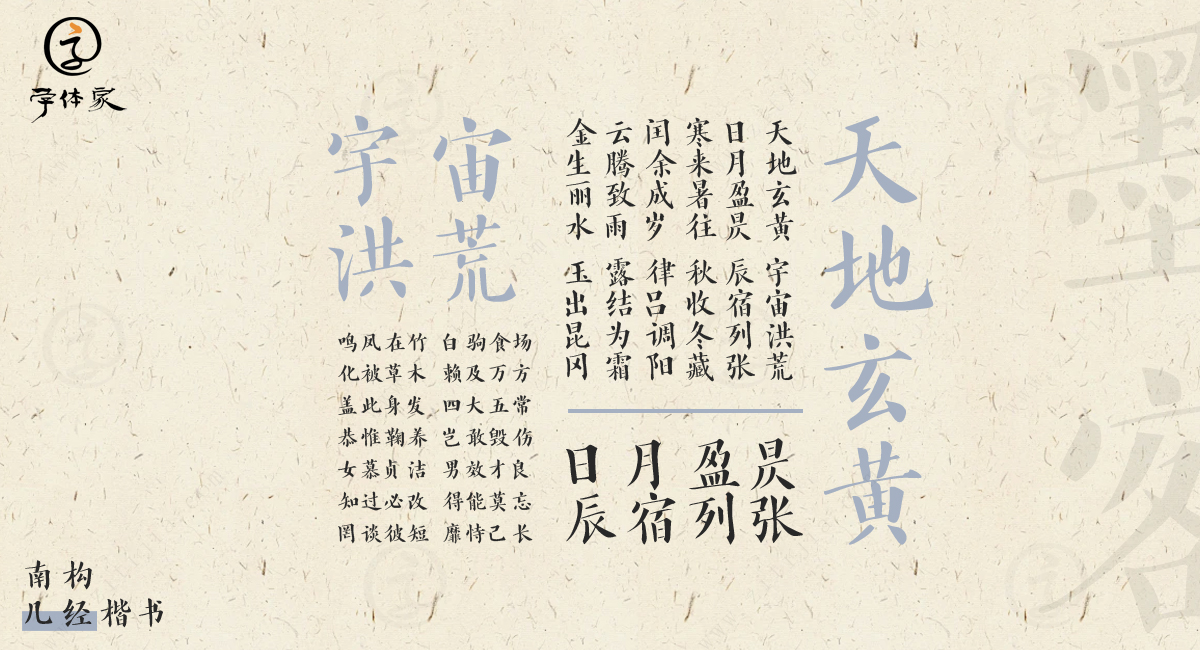 字
字体家
墨客
天地玄黄
天地玄黄 宇宙洪荒
日月盈昃 辰宿列张
寒来暑往 秋收冬藏
闰余成岁 律吕调阳
云腾致雨 露结为霜
金生丽水 玉出昆冈
日月盈昃
辰宿列张
宇宙
洪荒
鸣凤在竹 白驹食场
化被草木 赖及万方
盖此身发 四大五常
恭惟鞠养 岂敢毁伤
女慕贞洁 男效才良
知过必改 得能莫忘
罔谈彼短 靡恃己长
南构
儿经楷书